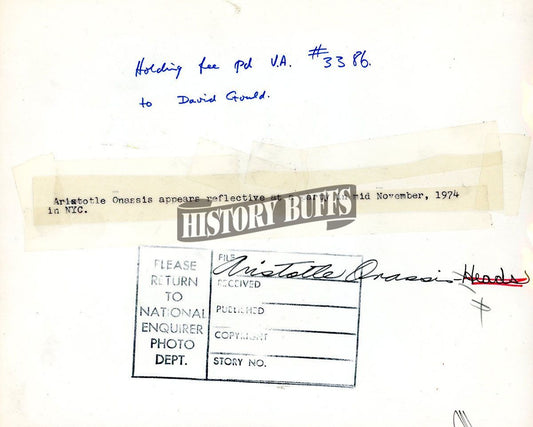 Holding fee pd V.A. #3386.
to David Gould.
Aristotle Onassis appears reflective at party in mid November, 1974
in NYC.
HISTORY BUFFS
PLEASE
RETURN
TO
NATIONAL
ENQUIRER
PHOTO
DEPT.
FILE Aristotle Onassis - Heads
RECEIVED
PUBLISHED
COPYRIGHT
STORY NO.